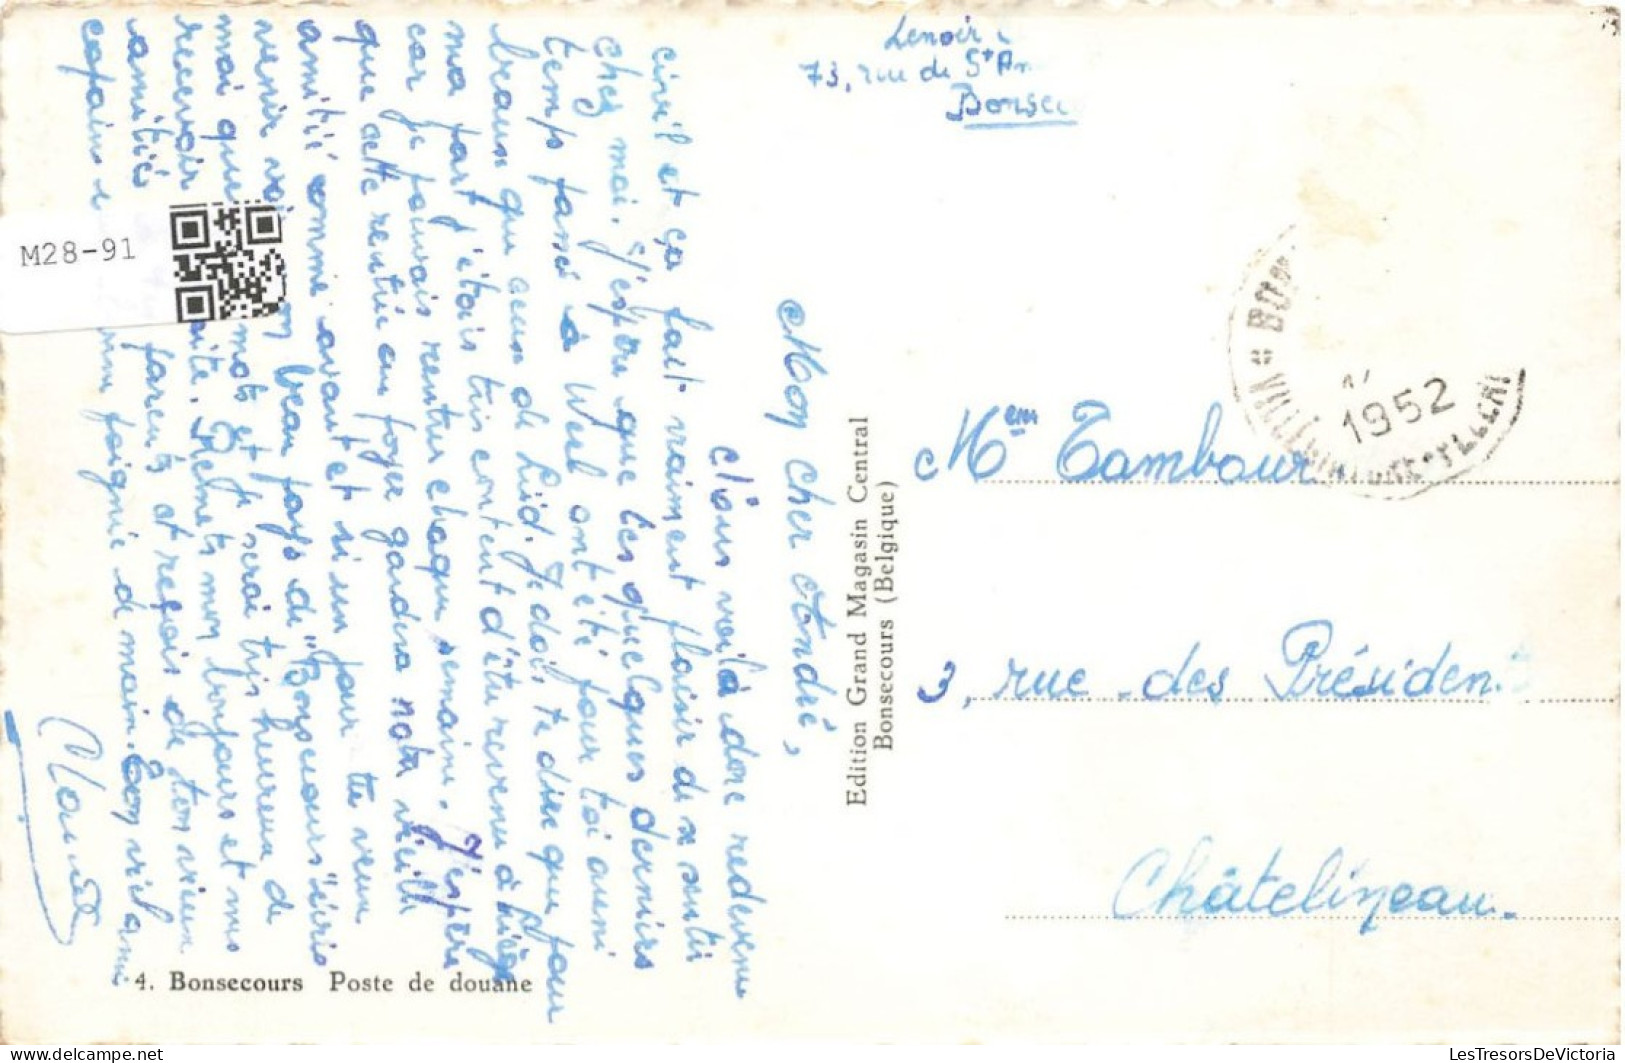 Lenoir
73, rue de St
Bonsec
Mon cher André,
Nous voilà donc redevenu
civil et ça fait vraiment plaisir de se sentir
chez moi. J'espère que les quelques derniers
temps passé à Weel ont été pour toi aussi
beaux que ceux de Lüd. Je dois te dire que pour
ma part j'étais très content d'être revenu à Liège
car je pouvais rentrer chaque semaine. J'espère
que cette rentrée au foyer gardera notre vieille
amitié comme avant et si un jour tu veux
venir voir mon beau pays de "Bonsecours" écris
moi quelques mots et je serai très heureux de
recevoir visite. Remets mon bonjours et mes
amitiés parents et reçois de ton vieux
copains une poignée de main. Ton vieil ami
Claude
4. Bonsecours Poste de douane
Edition Grand Magasin Central
Bonsecours (Belgique)
1952
Mem Tambour
3, rue des Présiden
Châtelineau.
M28-91
LesTresorsDeVictoria